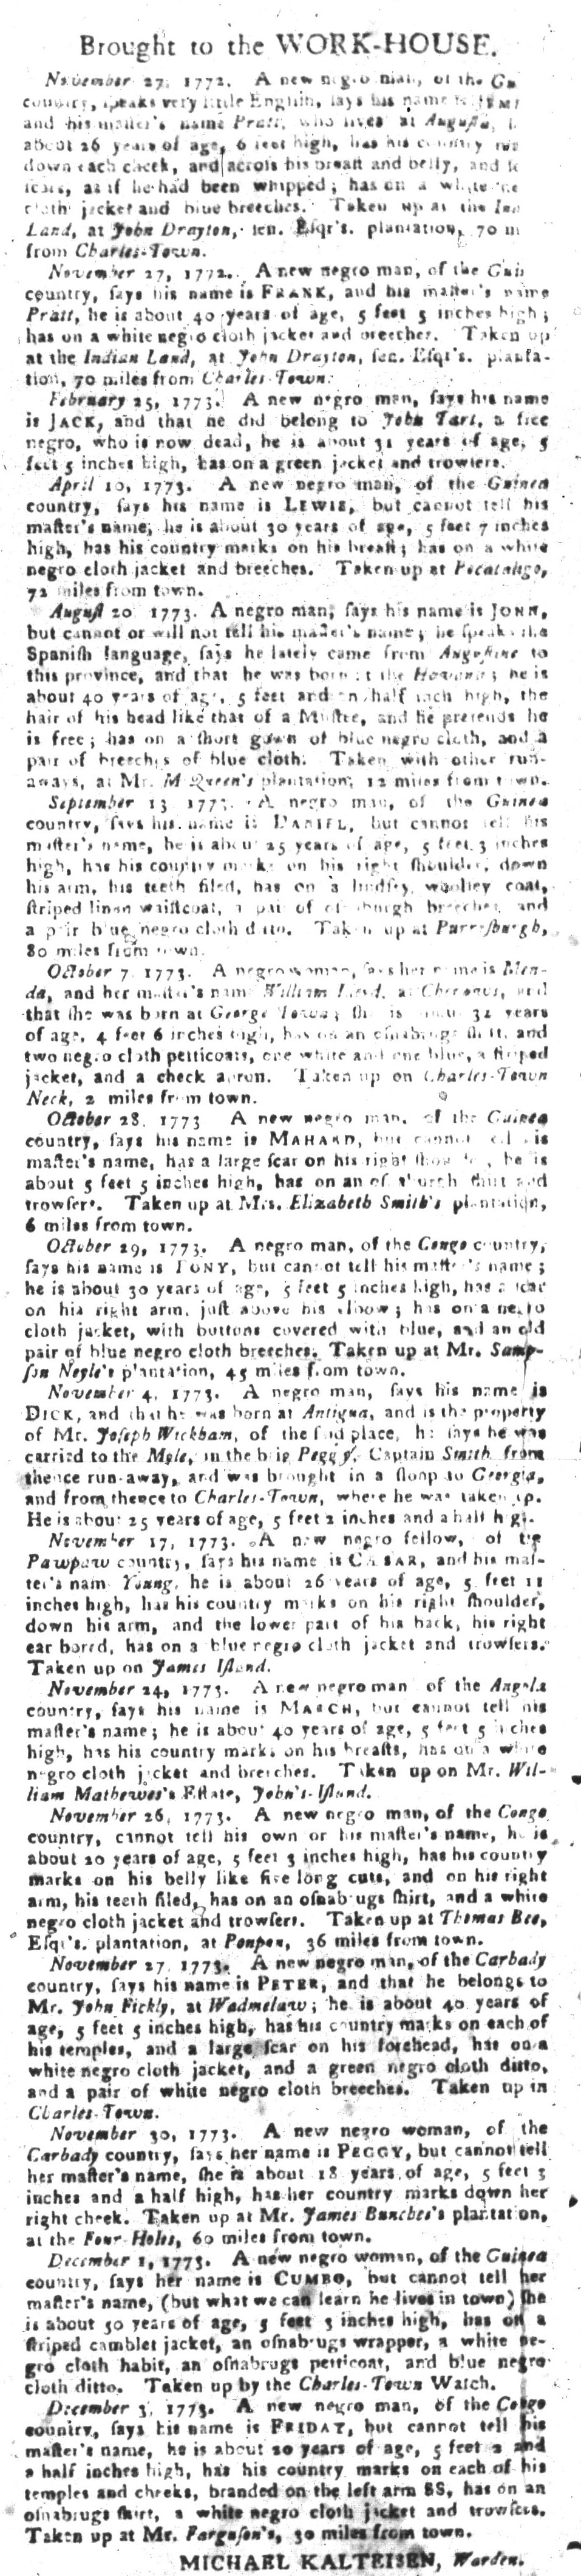 Brought to the WORK-HOUSE.
November 27, 1772. A new negro man, of the
country, speaks very little English, says his name is
and his master's name Pratt, who lives at Augusta,
about 26 years of age, 6 feet high, has his country
down each cheek, and across his breast and belly, and
scars, as if he had been whipped; has on a white
cloth jacket and blue breeches. Taken up at the
Land, at John Drayton, sen. Esqr's. plantation, 70
from Charles-Town.
November 27, 1772. A new negro man, of the
country, says his name is FRANK, and his master's name
Pratt, he is about 40 years of age, 5 feet 5 inches high;
has on a white negro cloth jacket and breeches. Taken up
at the Indian Land, at John Drayton, sen. Esqr's. planta-
tion, 70 miles from Charles-Town.
February 25, 1773. A new negro man, says his name
is JACK, and that he did belong to John Tart, a free
negro, who is now dead, he is about 31 years of age, 5
feet 5 inches high, has on a green jacket and trowsers.
April 10, 1773. A new negro man, of the Guinea
country, says his name is LEWIE, but cannot tell his
master's name; he is about 30 years of age, 5 feet 7 inches
high, has his country marks on his breast; has on a white
negro cloth jacket and breeches. Taken up at Pocataligo,
72 miles from town.
August 20 1773. A negro man; says his name is JOHN,
but cannot or will not tell his master's name; he speaks the
Spanish language, says he lately came from Augustine to
this province, and that he was born at the Havana; he is
about 40 years of age, 5 feet and an half inch high, the
hair of his head like that of a Mustee, and he pretends he
is free; has on a short gown of blue negro cloth, and a
pair of breeches of blue cloth. Taken with other run-
aways, at Mr. M'Queen's plantation, 12 miles from town.
September 13 1773. A negro man, of the Guinea
country, says his name is DANIEL, but cannot tell his
master's name, he is about 25 years of age, 5 feet 3 inches
high, has his country marks on his right shoulder, down
his arm, his teeth filed, has on a lindsey woolley coat,
striped linen waistcoat, a pair of osnaburgh breeches, and
a pair blue negro cloth ditto. Taken up at Purrysburgh,
80 miles from town.
October 7 1773. A negro woman, says her name is Men-
da, and her master's name William at and
that she was born at George Town; she is about 32 years
of age, 4 feet 6 inches high, has on an osnabrugs shift, and
two negro cloth petticoats, one white and one blue, a striped
jacket, and a check apron. Taken up on Charles-Town
Neck, 2 miles from town.
October 28, 1773 A new negro man, of the Guinea
country, says his name is MAHARD, but cannot tell his
master's name, has a large scar on his right shoulder, he is
about 5 feet 5 inches high, has on an osnaburgh shirt and
trowsers. Taken up at Mrs. Elizabeth Smith's plantation,
6 miles from town.
October 29, 1773. A negro man, of the Congo country,
says his name is TONY, but cannot tell his master's name;
he is about 30 years of age, 5 feet 5 inches high, has a scar
on his right arm, just above his elbow; has on a negro
cloth jacket, with buttons covered with blue, and an old
pair of blue negro cloth breeches. Taken up at Mr. Samp-
son Neyle's plantation, 45 miles from town.
November 4, 1773. A negro man, says his name is
DICK, and that he was born at Antigua, and is the property
of Mr. Joseph Wickham, of the said place, he says he was
carried to the Mole, in the brig Peggy, Captain Smith from
thence run-away, and was brought in a sloop to Georgia,
and from thence to Charles-Town, where he was taken up.
He is about 25 years of age, 5 feet 2 inches and a half high.
November 17, 1773. A new negro fellow, of the
Pawpaw country, says his name is CÆSAR, and his mas-
ter's name Young, he is about 26 years of age, 5 feet 11
inches high, has his country marks on his right shoulder,
down his arm, and the lower part of his back, his right
ear bored, has on a blue negro cloth jacket and trowsers.
Taken up on James Island.
November 24, 1773. A new negro man of the Angola
country, says his name is MARCH, but cannot tell his
master's name; he is about 40 years of age, 5 feet 5 inches
high, has his country marks on his breasts, has on a white
negro cloth jacket and breeches. Taken up on Mr. Wil-
liam Mathewes's Estate, John's-Island.
November 26, 1773. A new negro man, of the Congo
country, cannot tell his own or his master's name, he is
about 20 years of age, 5 feet 3 inches high, has his country
marks on his belly like five long cuts, and on his right
arm, his teeth filed, has on an osnabrugs shirt, and a white
negro cloth jacket and trowsers. Taken up at Thomas Bee,
Esqr's. plantation, at Ponpon, 36 miles from town.
November 27 1773. A new negro man, of the Carbady
country, says his name is PETER, and that he belongs to
Mr. John Fickly, at Wadmelaw; he is about 40 years of
age, 5 feet 5 inches high, has his country marks on each of
his temples, and a large scar on his forehead, has on a
white negro cloth jacket, and a green negro cloth ditto,
and a pair of white negro cloth breeches. Taken up in
Charles-Town.
November 30, 1773. A new negro woman, of the
Carbady country, says her name is PEGGY, but cannot tell
her master's name, she is about 18 years of age, 5 feet 3
inches and a half high, has her country marks down her
right cheek. Taken up at Mr. James Bunches's plantation,
at the Four-Holes, 60 miles from town.
December 1, 1773. A new negro woman, of the Guinea
country, says her name is CUMBO, but cannot tell her
master's name, (but what we can learn he lives in town) she
is about 30 years of age, 5 feet 3 inches high, has on a
striped camblet jacket, an osnabrugs wrapper, a white ne-
gro cloth habit, an osnabrugs petticoat, and blue negro
cloth ditto. Taken up by the Charles-Town Watch.
December 3, 1773. A new negro man, of the Congo
country, says his name is FRIDAY, but cannot tell his
master's name, he is about 20 years of age, 5 feet 2 and
a half inches high, has his country marks on each of his
temples and cheeks, branded on the left arm SS, has on an
osnabrugs shirt, a white negro cloth jacket and trowsers.
Taken up at Mr. Farguson's, 30 miles from town.
MICHAEL KALTEISEN, Warden.